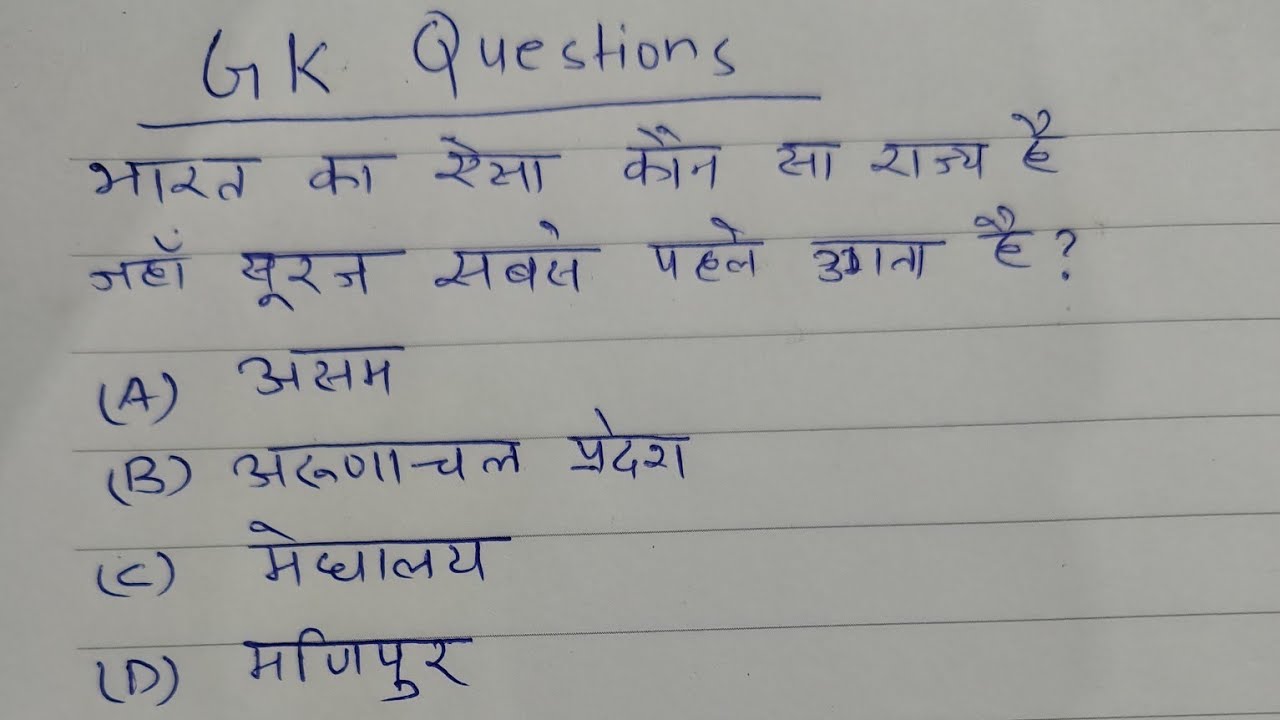 GK Questions
भारत का ऐसा कौन सा राज्य है
जहाँ सूरज सबसे पहले उगता है?
(A) असम
(B) अरूणाचल प्रदेश
(C) मेघालय
(D) मणिपुर